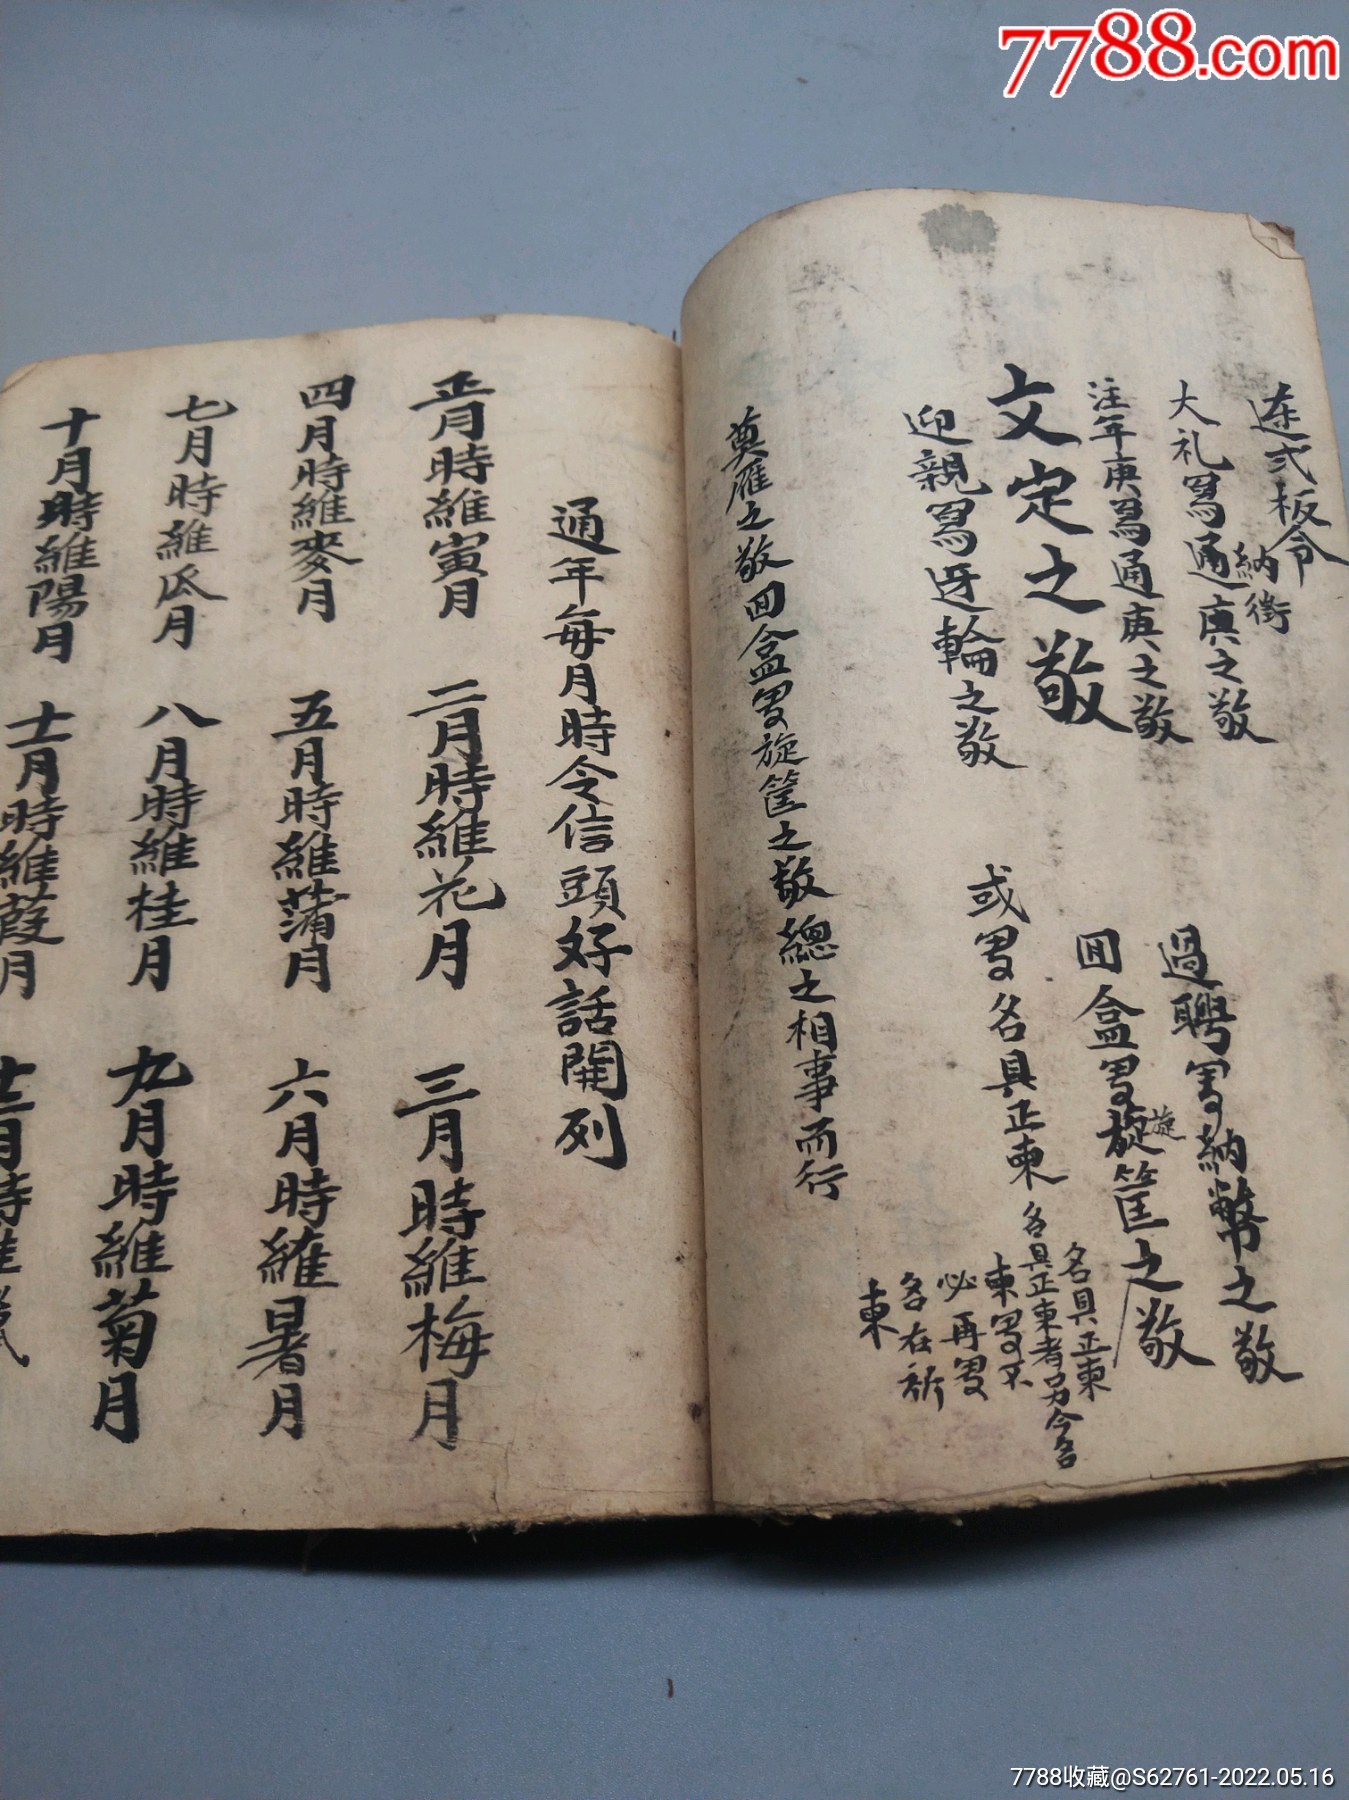 7788.com
大礼寫通庚之敬
納徵
過聘寫納幣之敬
注年庚寫通庚之敬
回盒寫旋筐之敬
旋
文定之敬
或寫名具正柬
名具正柬
名具正柬者另今名
柬寫不
必再寫
名在新
柬
迎親寫迓輪之敬
奠雁之敬回盒寫旋筐之敬總之相事而行
通年每月時令信頭好話開列
正月時維寅月
二月時維花月
三月時維梅月
四月時維麥月
五月時維蒲月
六月時維暑月
七月時維瓜月
八月時維桂月
九月時維菊月
十月時維陽月
十一月時維葭月
十二月時維
7788收藏@S62761-2022.05.16